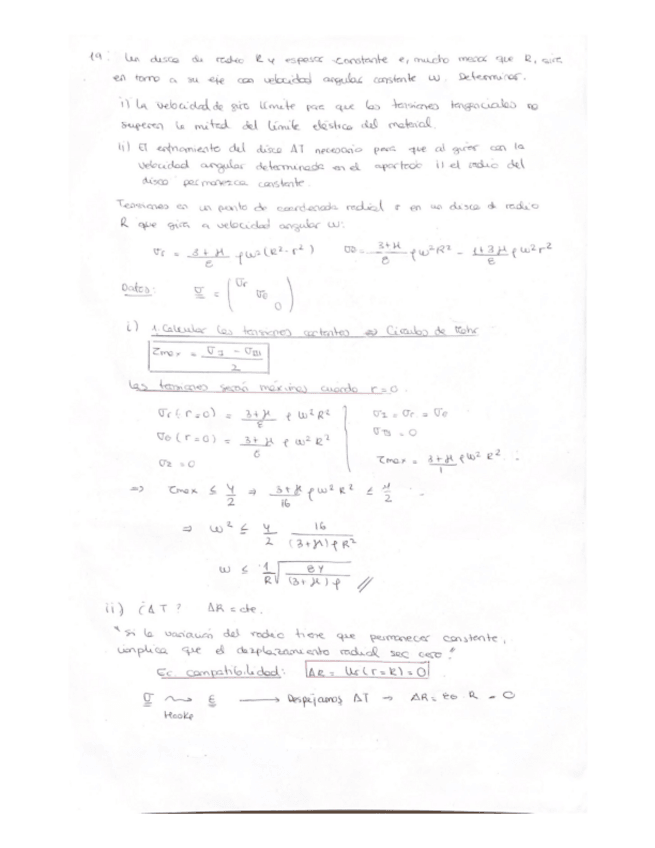 19. Un disco de radio R y espesor constante e, mucho menor que R, gira
en torno a su eje con velocidad angular constante ω. Determinar.
i) La velocidad de giro límite para que las tensiones tangenciales no
superen la mitad del límite elástico del material.
ii) El enfriamiento del disco ΔT necesario para que al girar con la
velocidad angular determinada en el apartado i) el radio del
disco permanezca constante.
Tensiones en un punto de coordenada radial r en un disco de radio
R que gira a velocidad angular ω:
σr = 3+μ/8 ρω²(R²-r²)   σθ = 3+μ/8 ρω²R² - 1+3μ/8 ρω²r²
Datos: σ = (σr σθ 0)
i) 1. Calcular las tensiones cortantes ⇒ Círculos de Mohr
τmax = σI - σIII / 2
Las tensiones serán máximas cuando r=0.
σr(r=0) = 3+μ/8 ρω²R²   σI = σr = σθ
σθ(r=0) = 3+μ/8 ρω²R²   σIII = 0
σz = 0   τmax = 3+μ/1 ρω²R².
⇒ τmax ≤ Y/2 ⇒ 3+μ/16 ρω²R² ≤ Y/2
⇒ ω² ≤ Y/2 16/(3+μ)ρR²
ω ≤ 1/R √8Y/(3+μ)ρ //
ii) ¿ΔT? ΔR = cte.
"Si la variación del radio tiene que permanecer constante,
implica que el desplazamiento radial sea cero."
Ec. compatibilidad: ΔR = Ur(r=R) = 0
σ ⇝ ε ⟶ Despejamos ΔT → ΔR = εθ · R = 0
Hooke